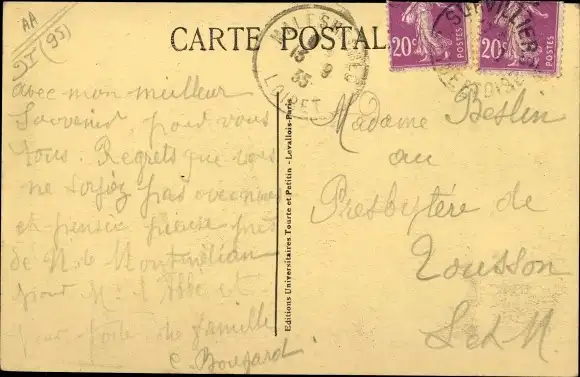 AA
ST (95)
CARTE POSTALE
MALESHERBES
13 - 9
35
LOIRET
20c POSTES
20c POSTES
SURVILLIERS
SEINE-ET-OISE
avec mon meilleur
Souvenir pour vous
tous. Regrets que vous
ne soyez pas avec nous
et pensée pieuse près
de N. de Montmélian
pour Mr l'Abbé et
pour toute la famille
C. Bougard
Editions Universitaires Tourte et Petitin - Levallois-Paris
Madame Beslin
au
Presbytère de
Tousson
S et M.